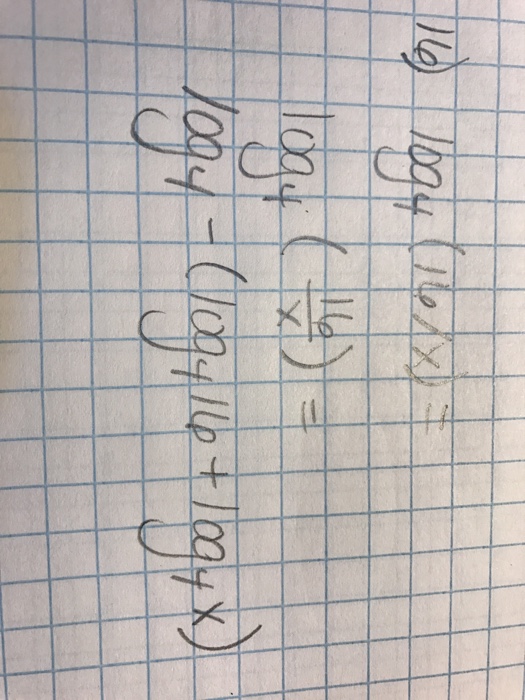 16) log4 (16/x) =
log4 (16/x) =
log4 - (log4 16 + log4 x)